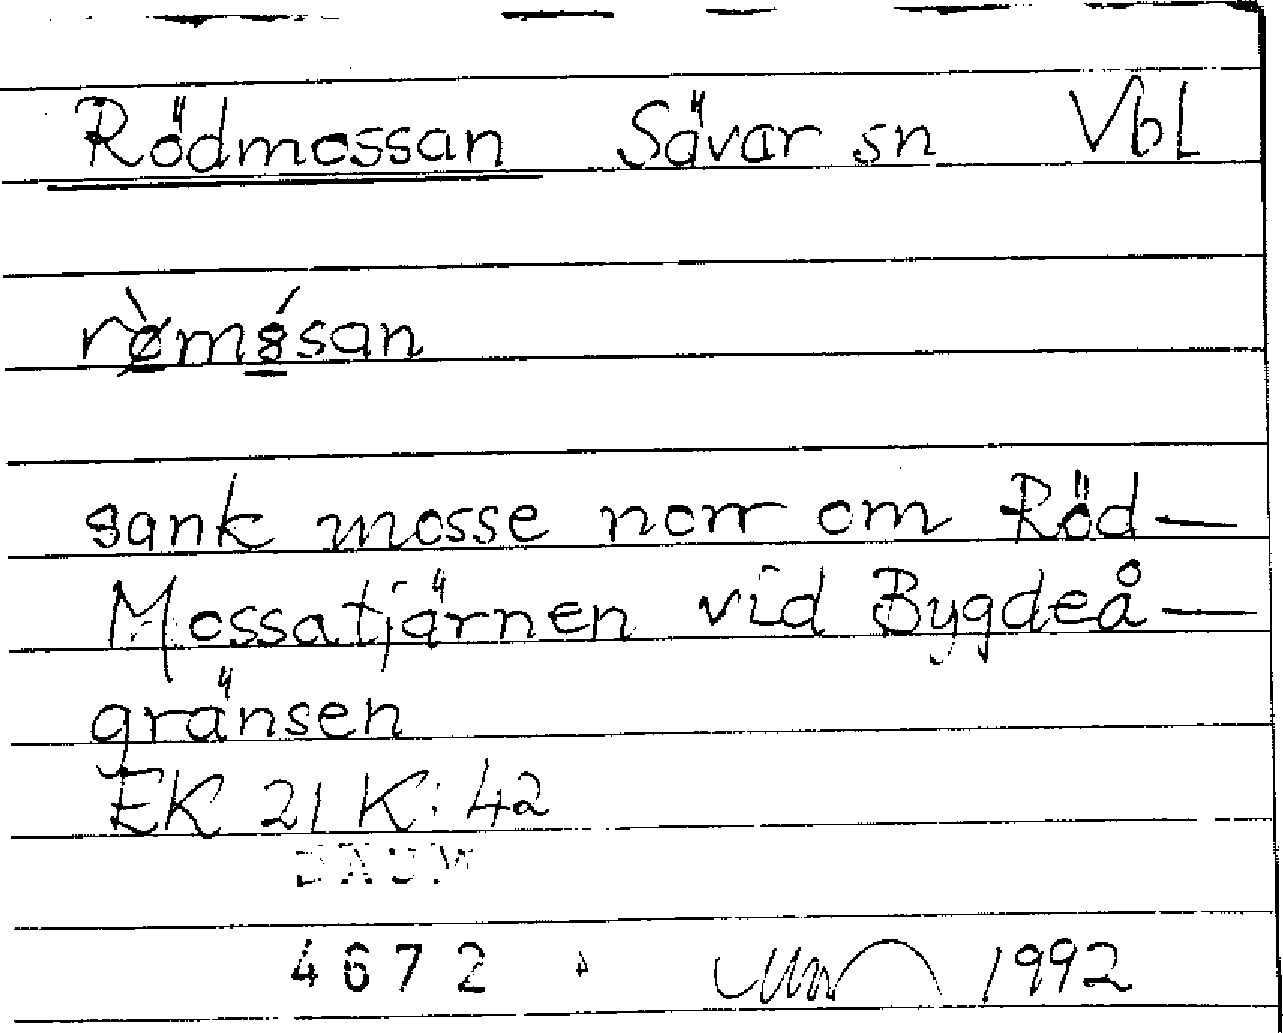 Rödmossan Sävar sn Vbl
sank mosse norr om Röd-
Mossatjärnen vid Bygdeå-
gränsen
EK 21 K: 42
DAUM
4672 1992